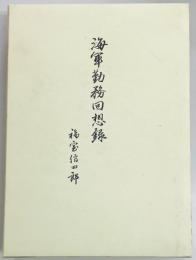 海軍勤務回想録
福宝信四郎